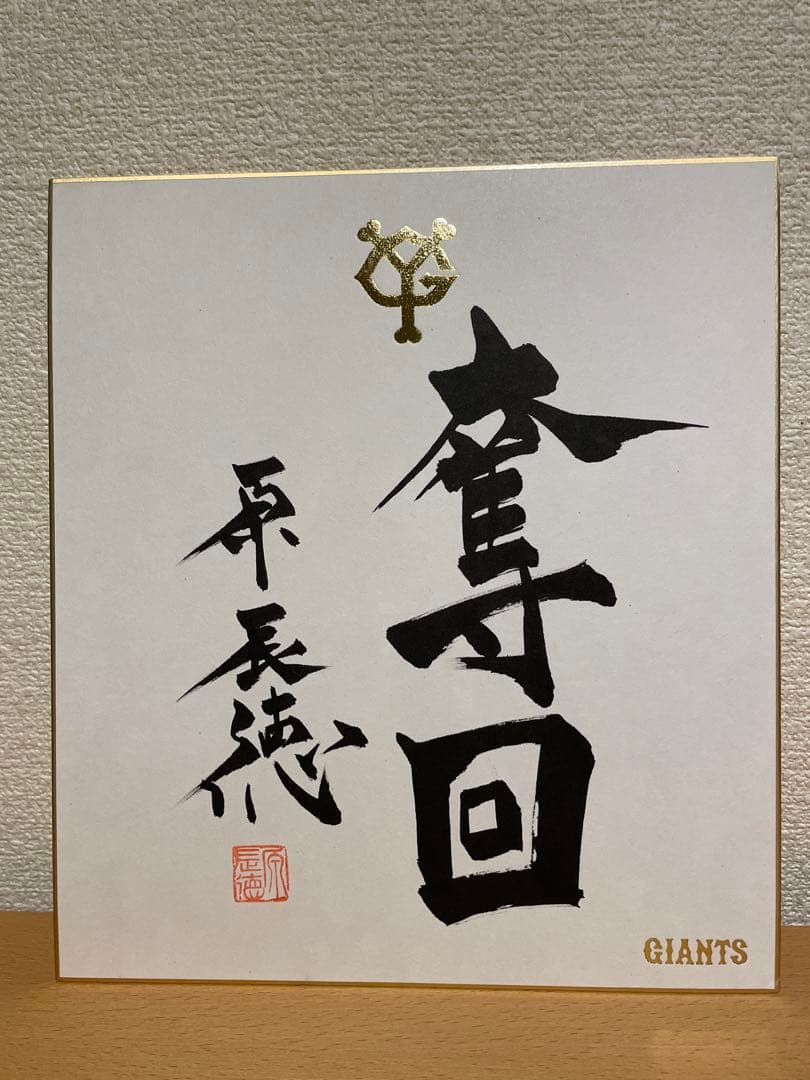 奪回
原辰徳
原辰徳
GIANTS